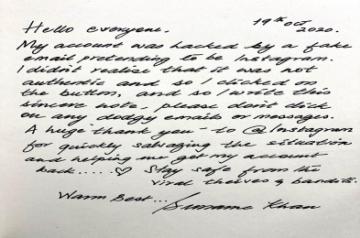 Hello everyone.
19th Oct
2020.
My account was hacked by a fake
email pretending to be Instagram.
I didn't realise that it was not
authentic and so I clicked on
the button, and so I write this
sincere note, please don't click
on any dodgy emails or messages.
A huge thank you - to @Instagram
for quickly salvaging the situation
and helping me get my account
back..... ♡ Stay safe from the
viral thieves & bandits.
Warm Best... Sussanne Khan